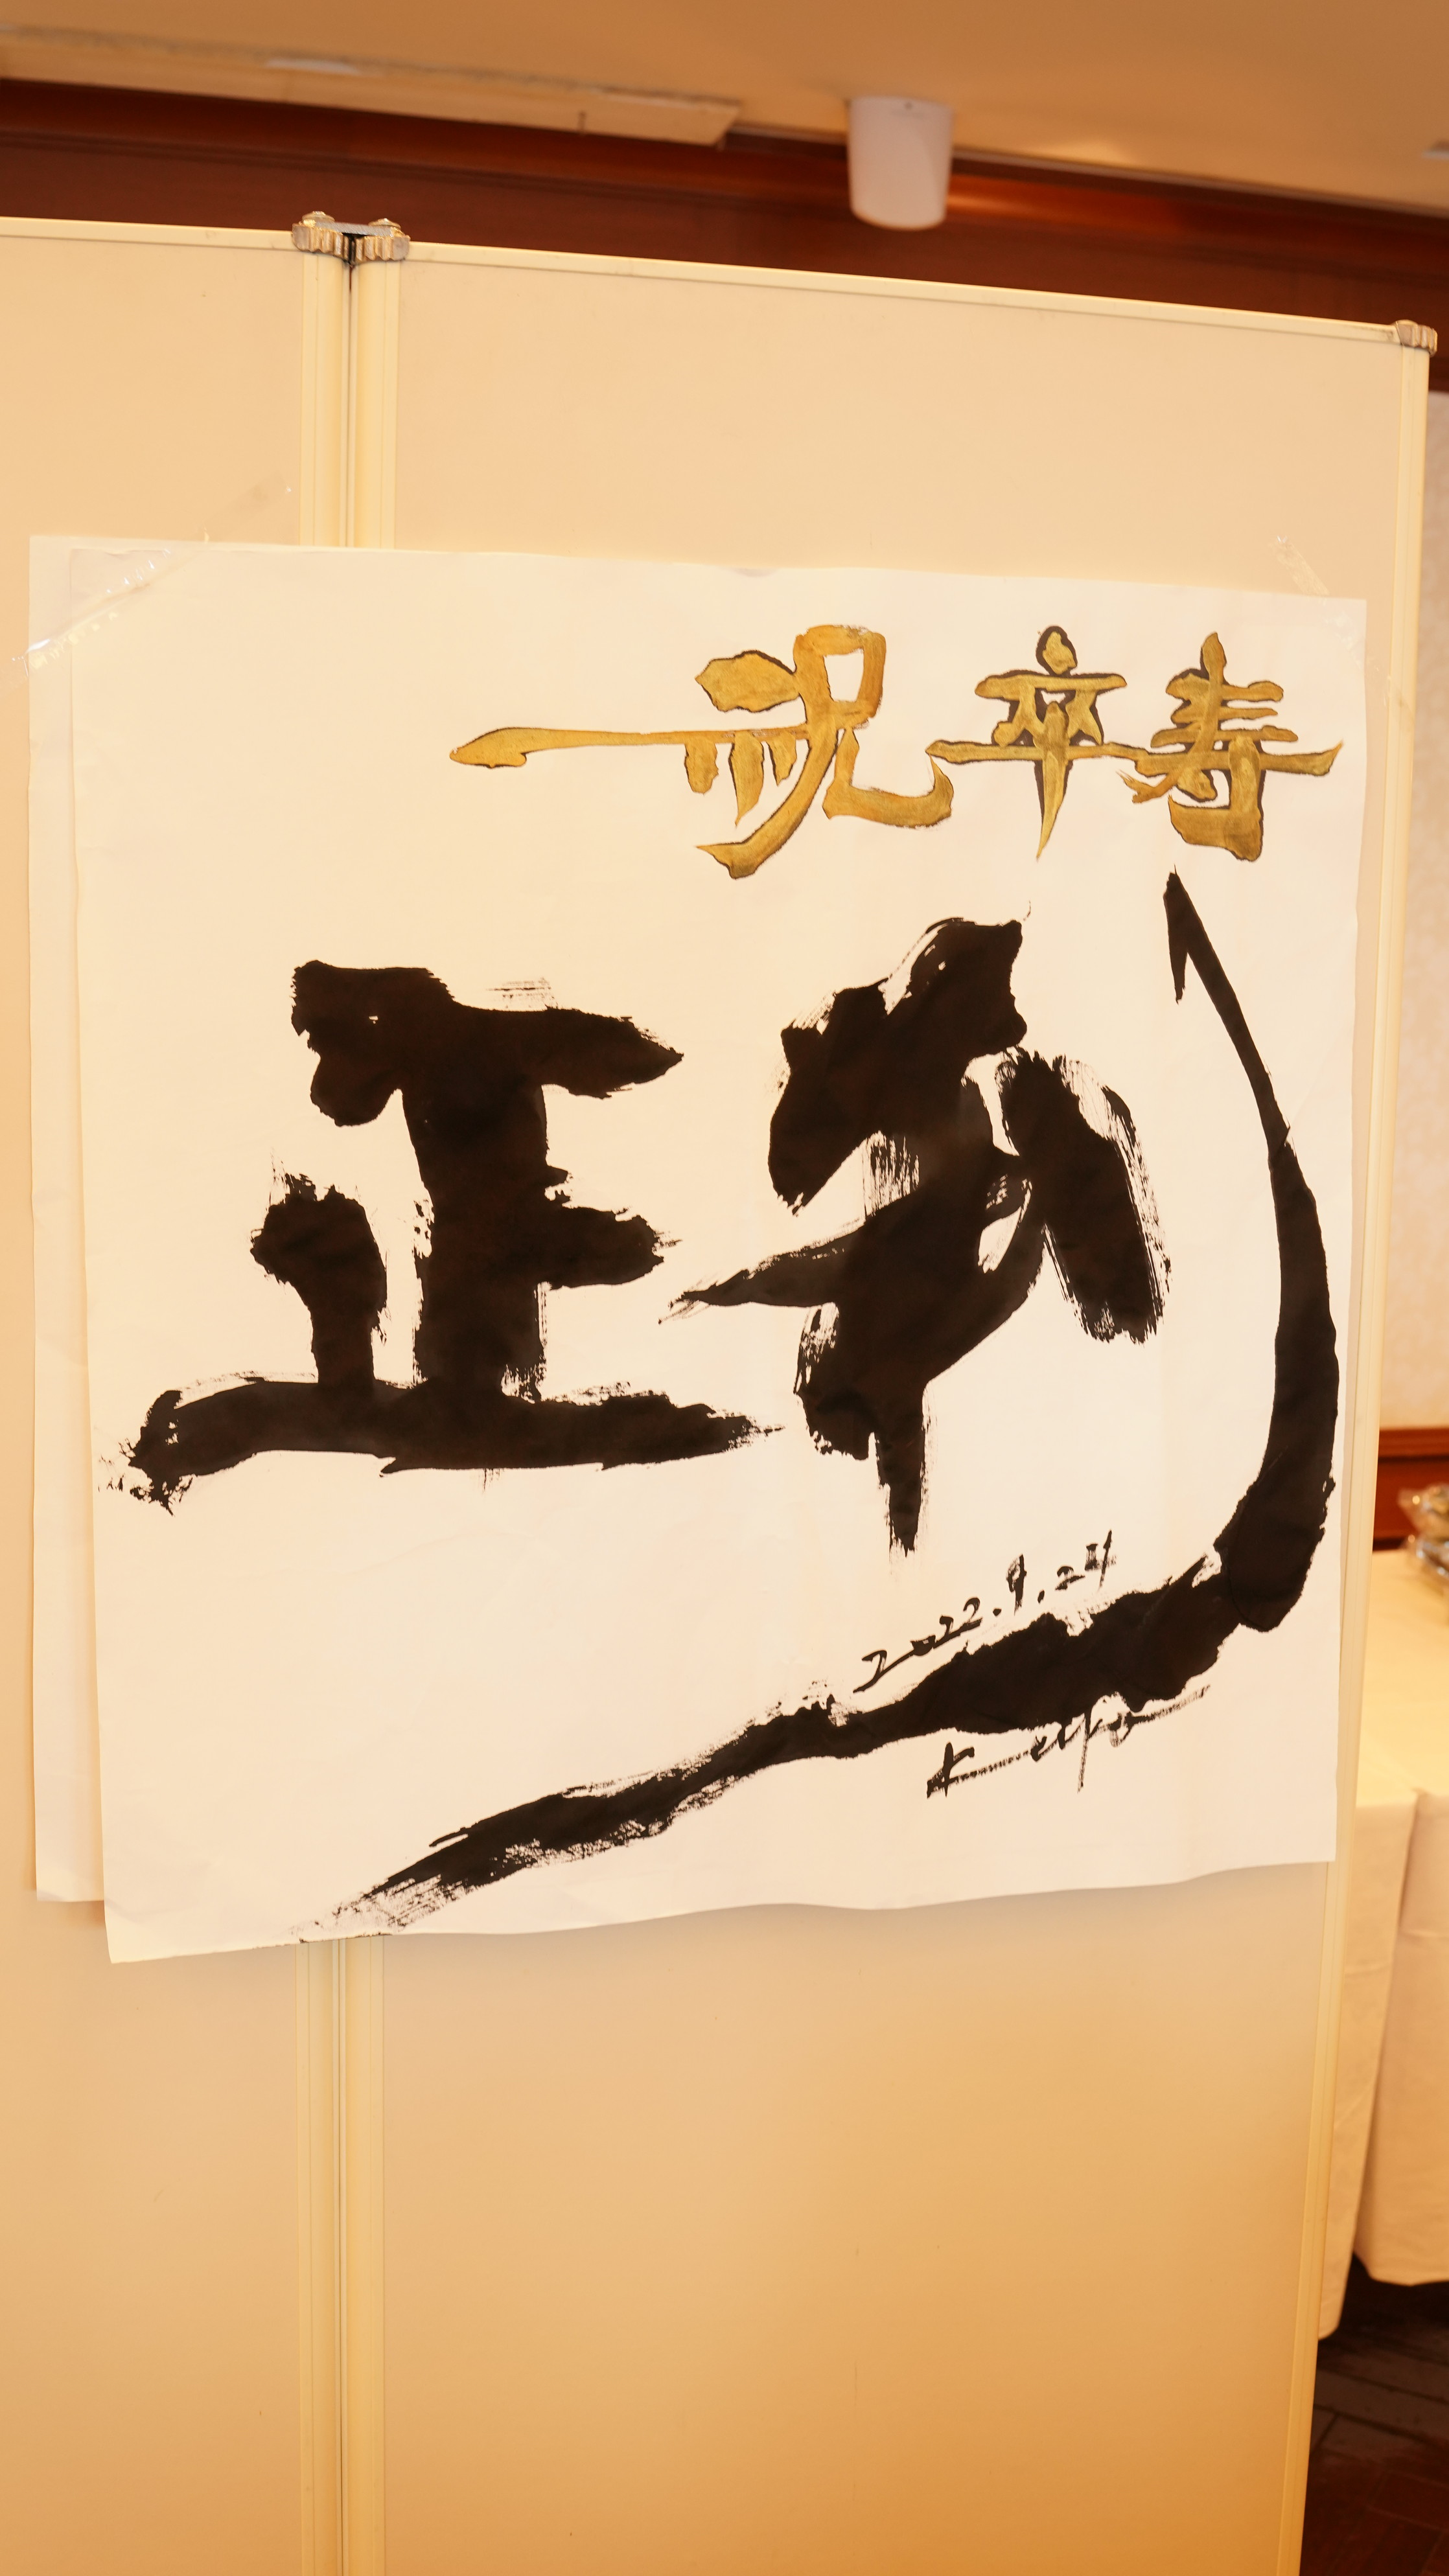 祝卒寿
正利
2022.9.24